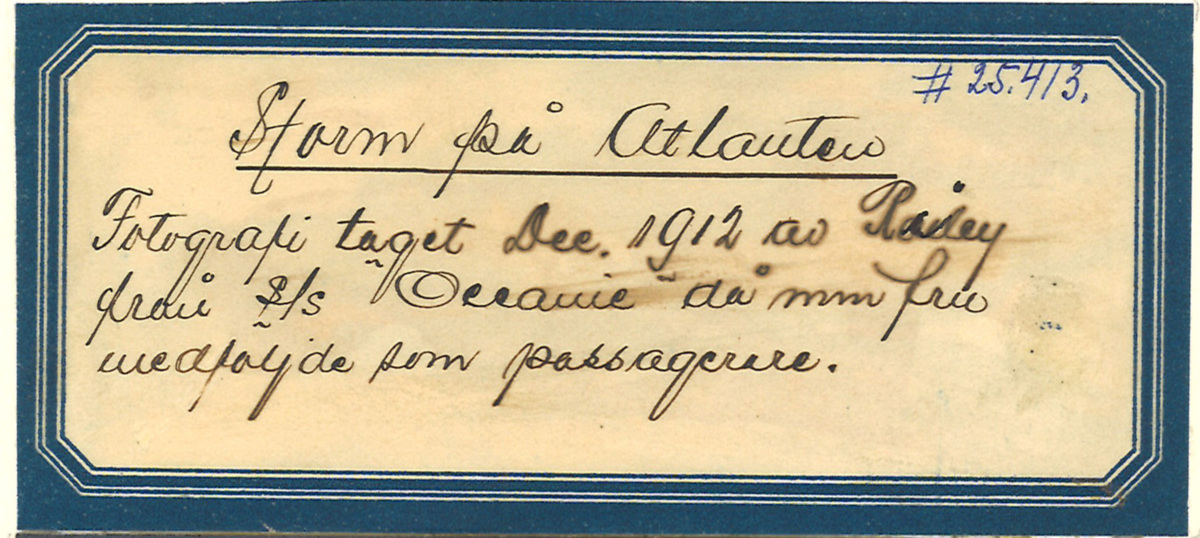 # 25.413.
Storm på Atlanten
Fotografi taget Dec. 1912 av
från S/s "Oceanic" då min fru
medföljde som passagerare.